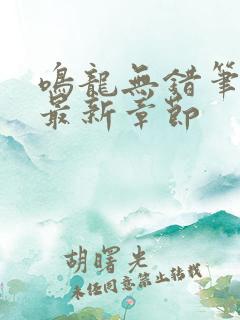 鳴龍無錯筆
最新章節
胡曙光
未經同意禁止轉載